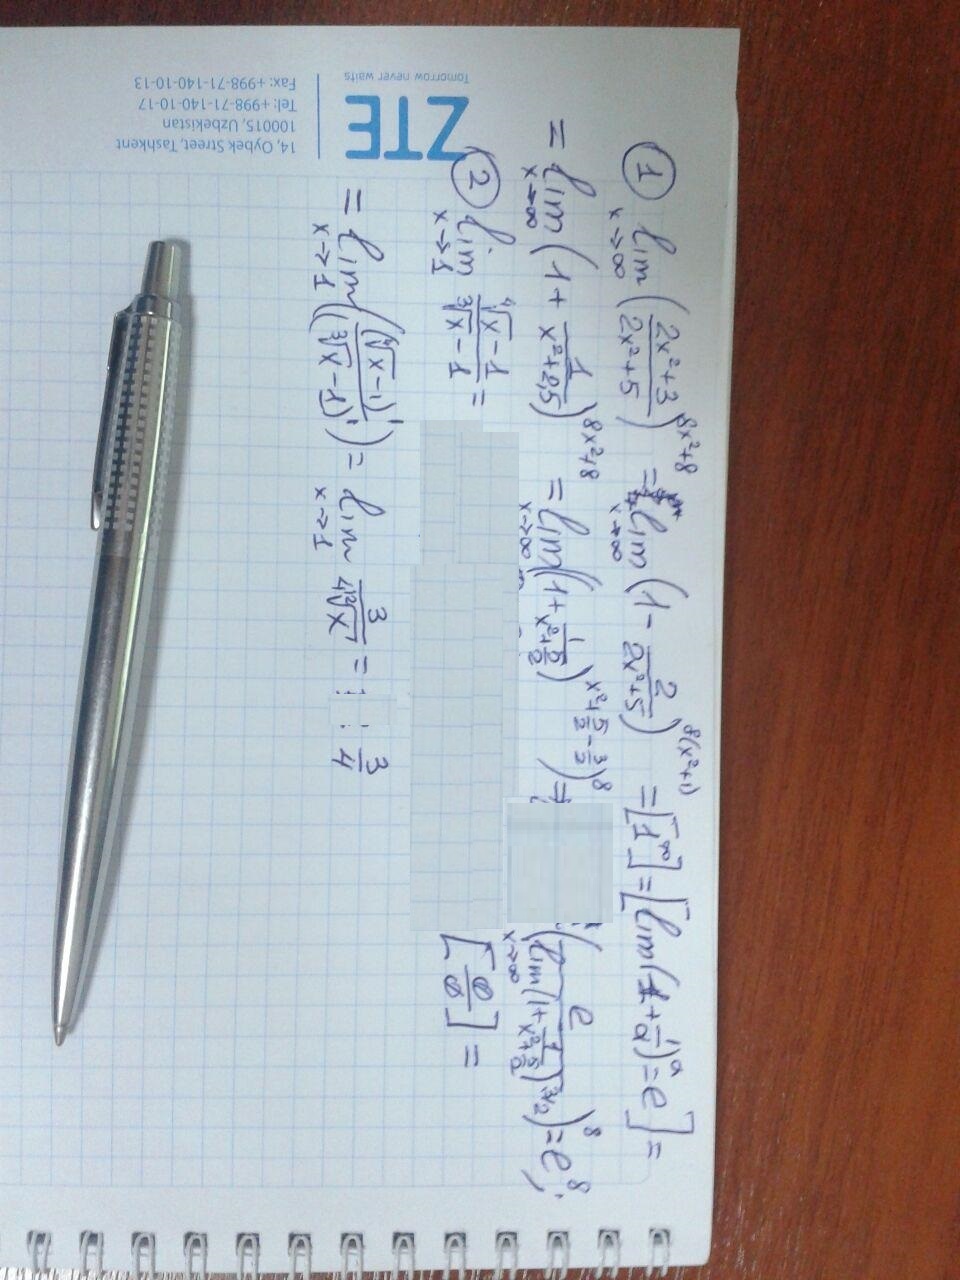 ZTE
Tomorrow never waits
14, Oybek Street, Tashkent
100015, Uzbekistan
Tel: +998-71-140-10-17
Fax: +998-71-140-10-13
① lim x→∞ ((2x²+3)/(2x²+5))^(8x²+8) = lim x→∞ (1 - 2/(2x²+5))^(8(x²+1)) = [1^∞] = [lim(1+1/a)^a = e] =
= lim x→∞ (1 + 1/(x²+2,5))^(8x²+8) = lim x→∞ ((1 + 1/(x²+5/2))^(x²+5/2-3/2))^8 = (e / lim x→∞ (1 + 1/(x²+5/2))^(3/2))^8 = e^8;
② lim x→1 (∜x - 1)/(∛x - 1) = [0/0] =
= lim x→1 ((∜x - 1)'/(∛x - 1)') = lim x→1 3/(4 ¹²√x) = 3/4